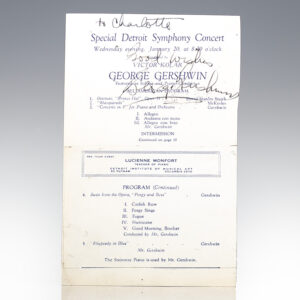 to Charlotte
Special Detroit Symphony Concert
Wednesday evening, January 20, at 8:30 o'clock
Good Wishes
VICTOR KOLAR
GEORGE GERSHWIN
George Gershwin
"Concerto in F" for Piano and Orchestra Gershwin
I Allegro
II Andante con moto
III Allegro con brio
Mr. Gershwin
INTERMISSION
(Continued on page
LUCIENNE MONFORT
TEACHER OF PIANO
DETROIT INSTITUTE OF MUSICAL ART
PROGRAM (Continued)
4. Suite from the Opera, "Porgy and Bess" Gershwin
I Catfish Row
II Porgy Sings
III Fugue
IV Hurricane
V Good Morning, Brother
Conducted by Mr. Gershwin
"Rhapsody in Blue" Gershwin
Mr. Gershwin
The Steinway Piano is used by Mr. Gershwin.